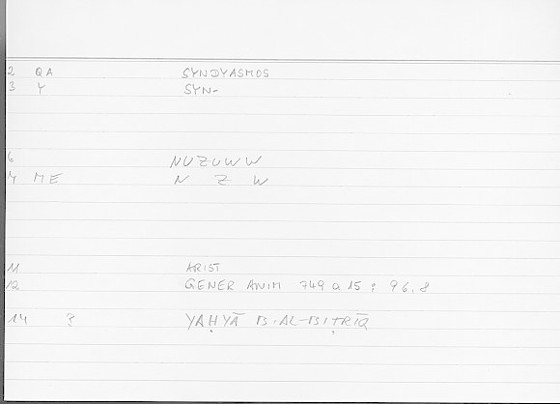 2 QA SYNDYASMOS
3 Y SYN-
6 NUZUWW
7 ME N Z W
11 ARIST
12 GENER ANIM 749 a 15 ; 96,8
14 ? YAḤYĀ B. AL-BIṬRĪQ